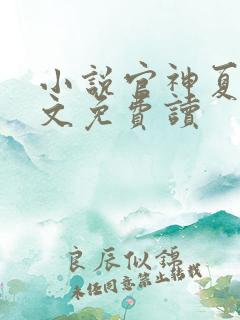 小說官神夏
文免費讀
良辰似錦
未任同意禁止转载